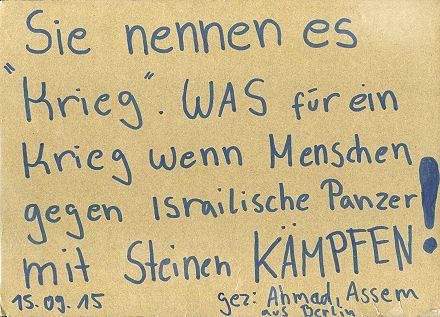 Sie nennen es
"Krieg". WAS für ein
Krieg wenn Menschen
gegen Israilische Panzer
mit Steinen KÄMPFEN!
15.09.15
gez: Ahmad, Assem
aus Berlin